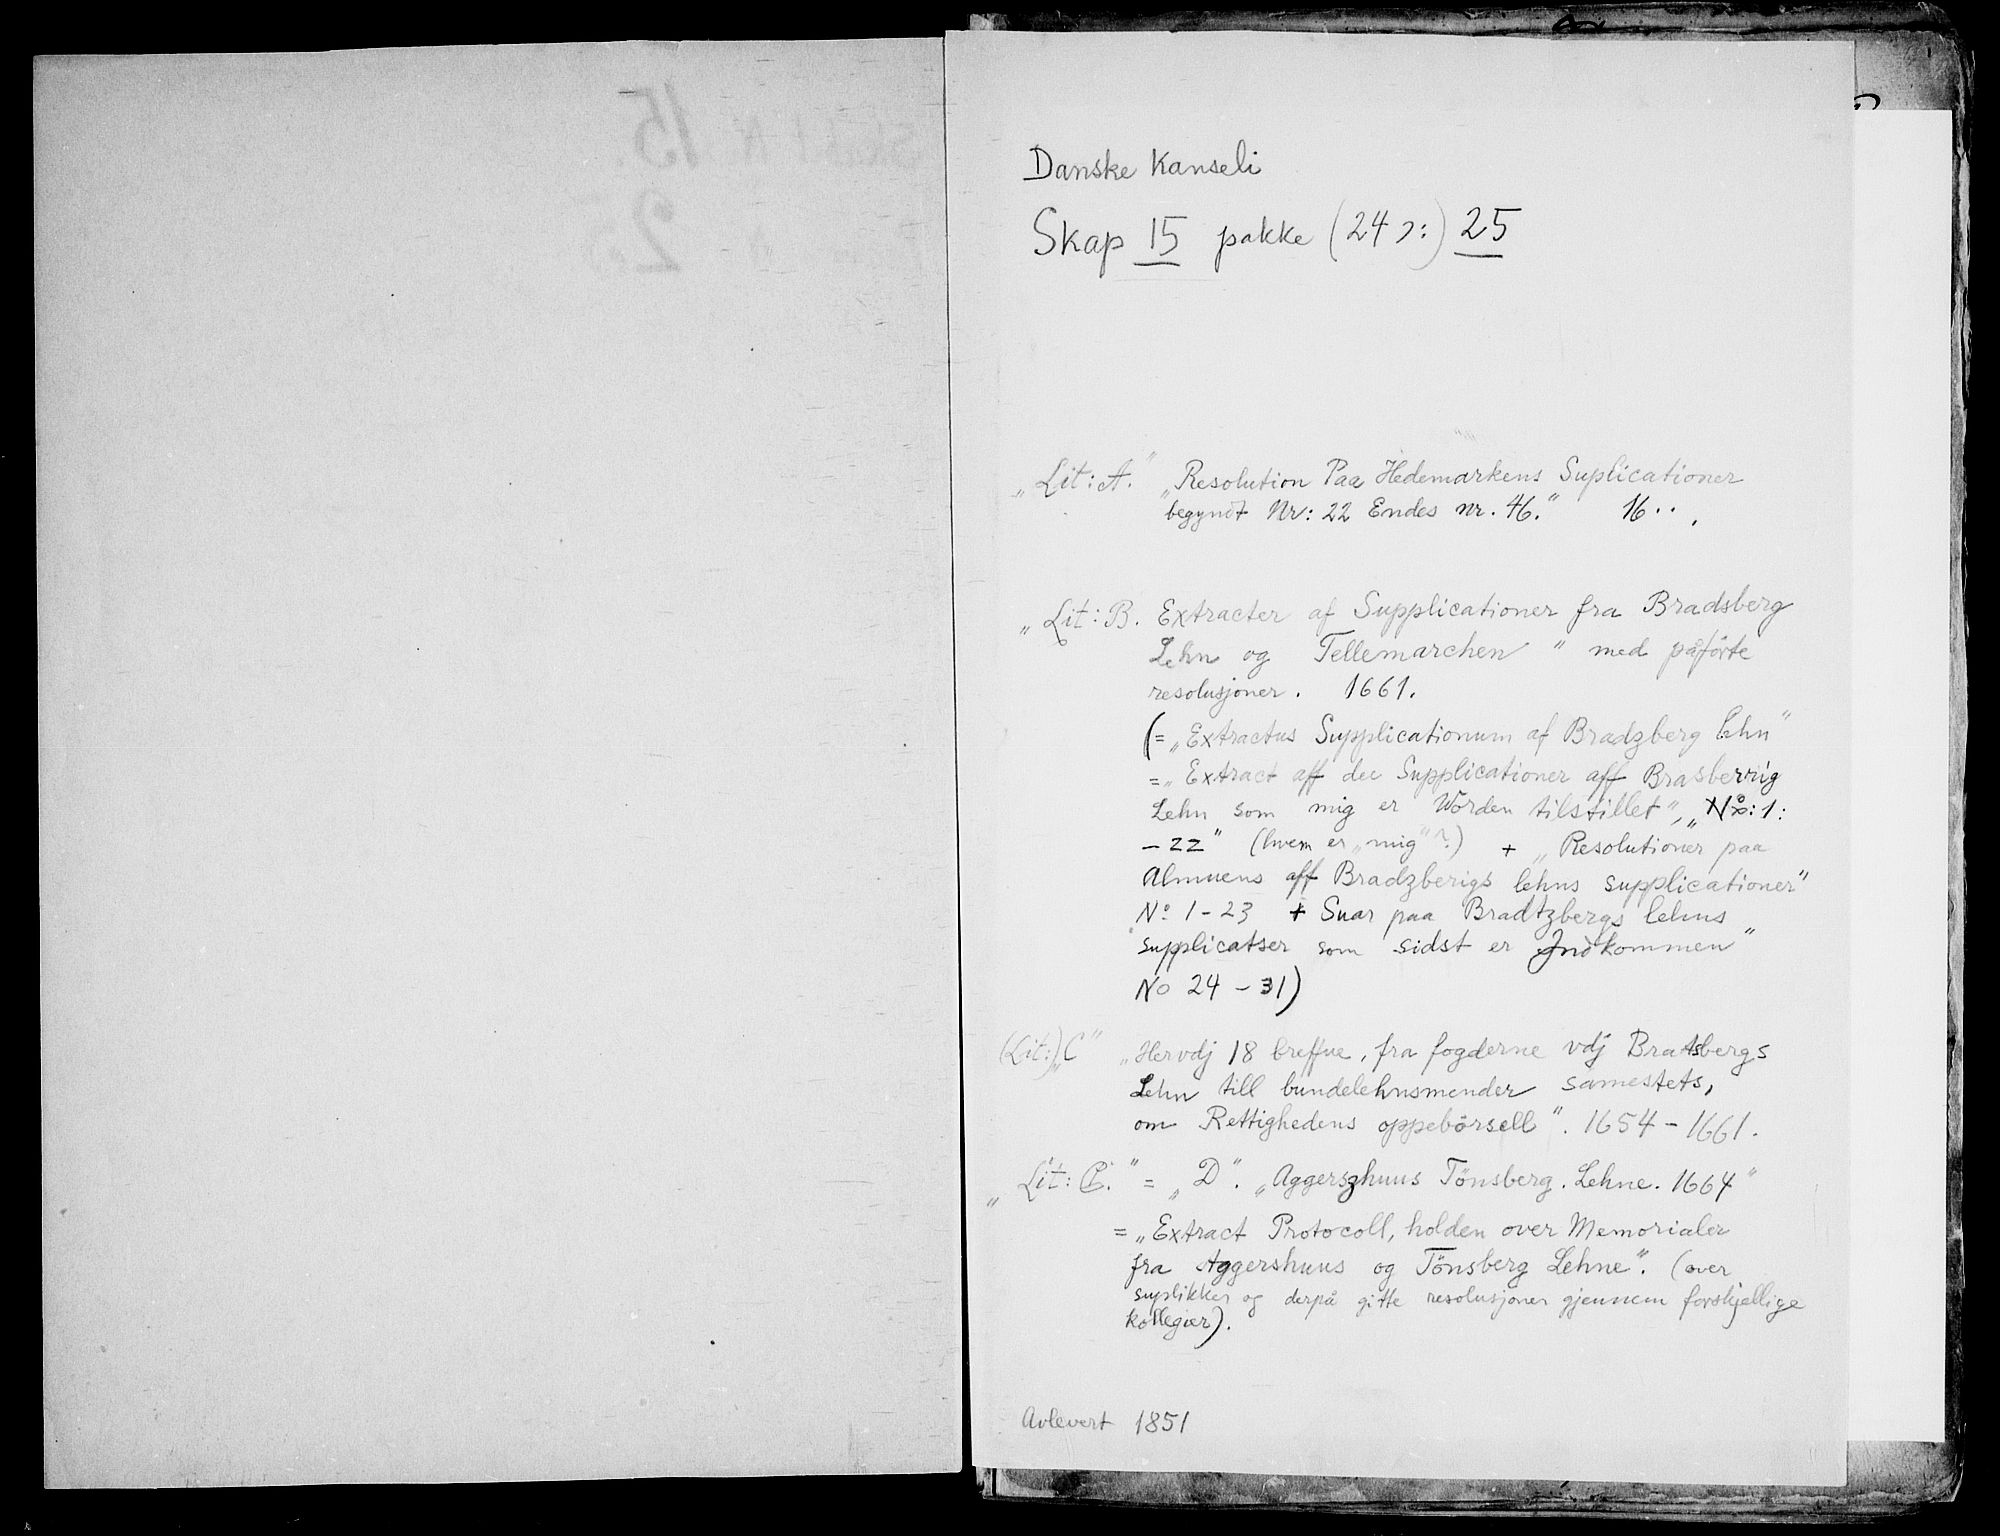 Danske Kanseli
Skap 15 pakke (24 ɔ:) 25
„Lit: A." „Resolution Paa Hedemarkens Suplicationer
begyndt Nr: 22 Endes nr. 46." 16 . . .
„Lit: B. Extracter af Supplicationer fra Bradsberg
Lehn og Tellemarchen" med påførte
resolusjoner. 1661.
(= „Extractus Supplicationum af Bradzberg lehn"
= „Extract aff de Supplicationer aff Brasberrig
Lehn som mig er Worden tilstillet", „No: 1:
- 22" (hvem er „mig"?) + „Resolutioner paa
Almuens aff Bradzberigs lehns supplicationer"
No 1 - 23 + Suar paa Bradtzbergs lehns
supplicatser som sidst er Indkommen"
No 24 - 31)
(Lit:) „C" „Her vdj 18 breffue, fra fogderne vdj Bratsbergs
Lehn till bundelehnsmender samestets,
om Rettighedens oppebörsell". 1654 - 1661.
„Lit: C." = „D". „Aggerszhuus Tönsberg. Lehne. 1664"
= „Extract Protocoll, holden over Memorialer
fra Aggershuus og Tönsberg Lehne". (over
suplikker og derpå gitte resolusjoner gjennem forskjellige
kollegier).
Avlevert 1851
15.
25